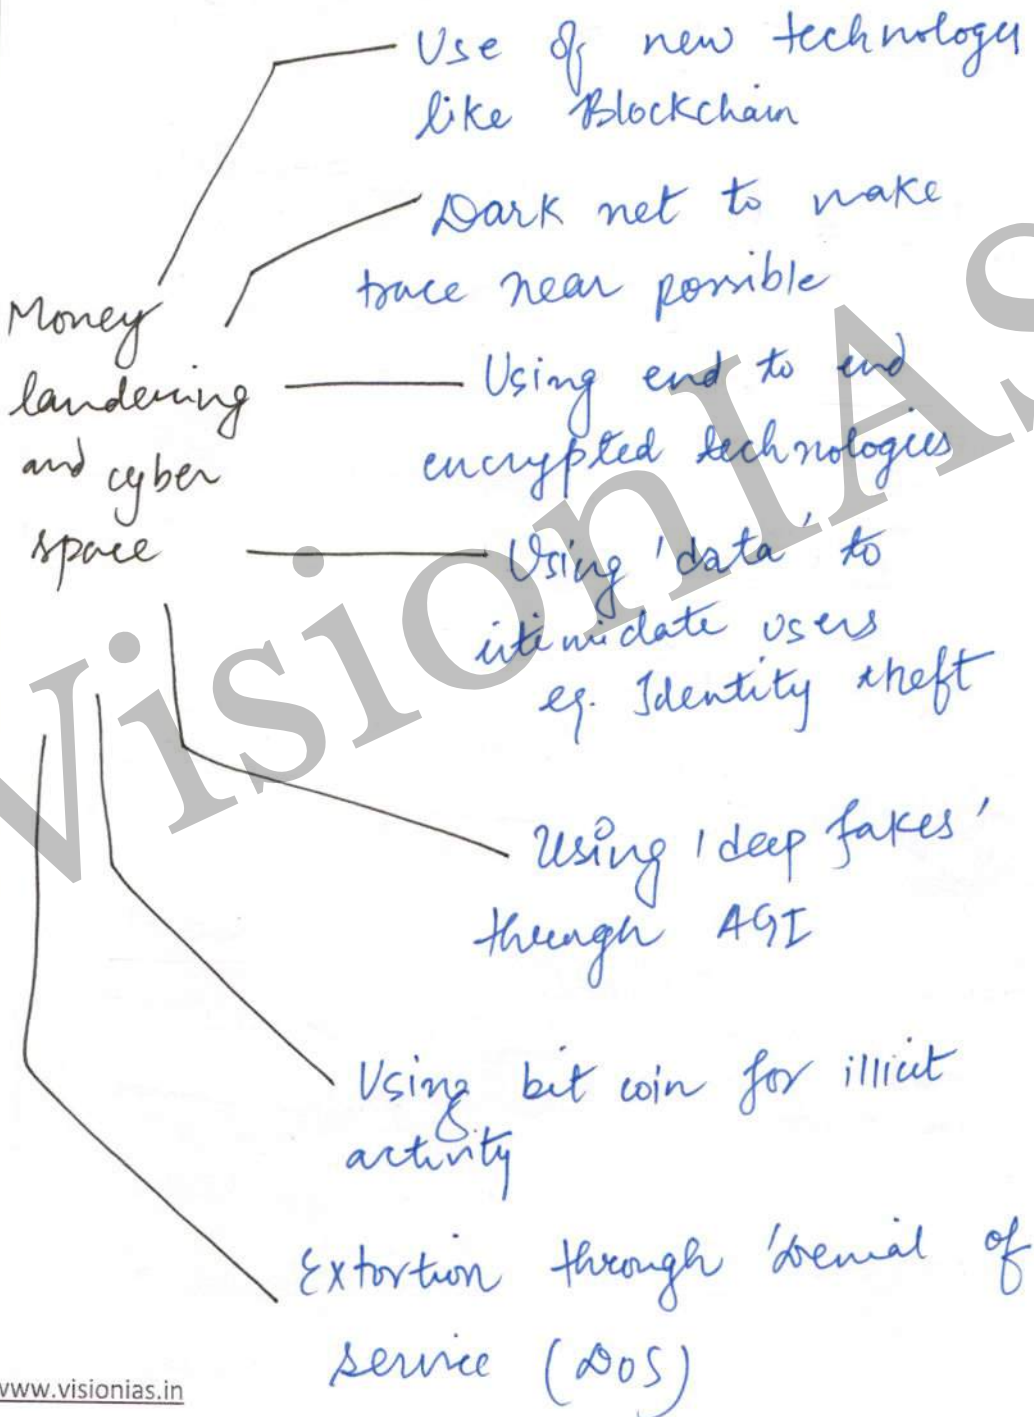 Use of new technology
like Blockchain
Dark net to make
trace near possible
Money
landering
and cyber
space
Using end to end
encrypted technologies
Using 'data' to
intimidate users
eg. Identity theft
Using 'deep fakes'
through AGI
Using bit coin for illicit
activity
Extortion through 'Denial of
service (DOS)
VisionIAS
www.visionias.in